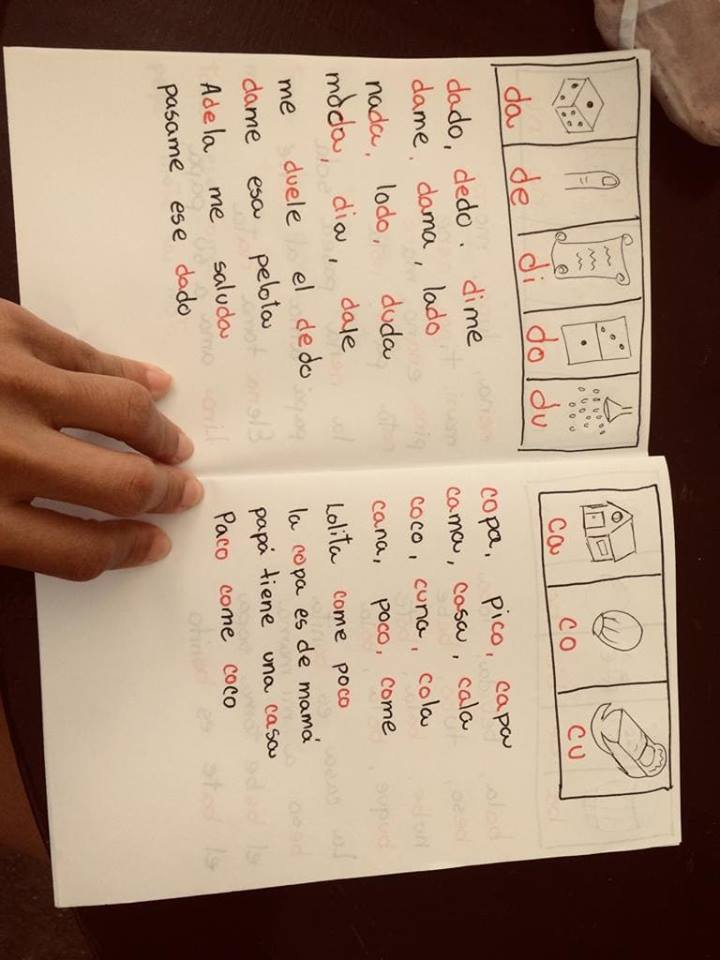 da de di do du
dado, dedo. dime
dame, dama, lado
nada, lodo, duda
moda, dia, dale
me duele el dedo
dame esa pelota
Adela me saluda
pasame ese dado
ca co cu
copa, pico, capa
cama, casa, cala
coco, cuna, cola
cana, poco, come
Lolita come poco
la copa es de mamá
papá tiene una casa
Paco come coco